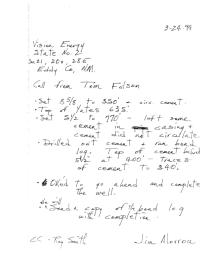 3-24-99
Vision Energy
State No. 21
Sec 21, 20s, 28E
Eddy Co, NM.
Call from Tim Folsan
· Set 8 5/8, to 350' + circ cement.
· Top of Yates 635'
· Set 5 1/2 to 770' - left some
cement in casing +
cement did not circulate.
· Drilled out cement + ran bond
log. Top of cement behind
5 1/2 at 400' - traces
of cement to 340'.
· Ok'd to go ahead and complete
the well.
Send a copy of the bond log
with completion.
CC - Ray Smith
Jim Morrow